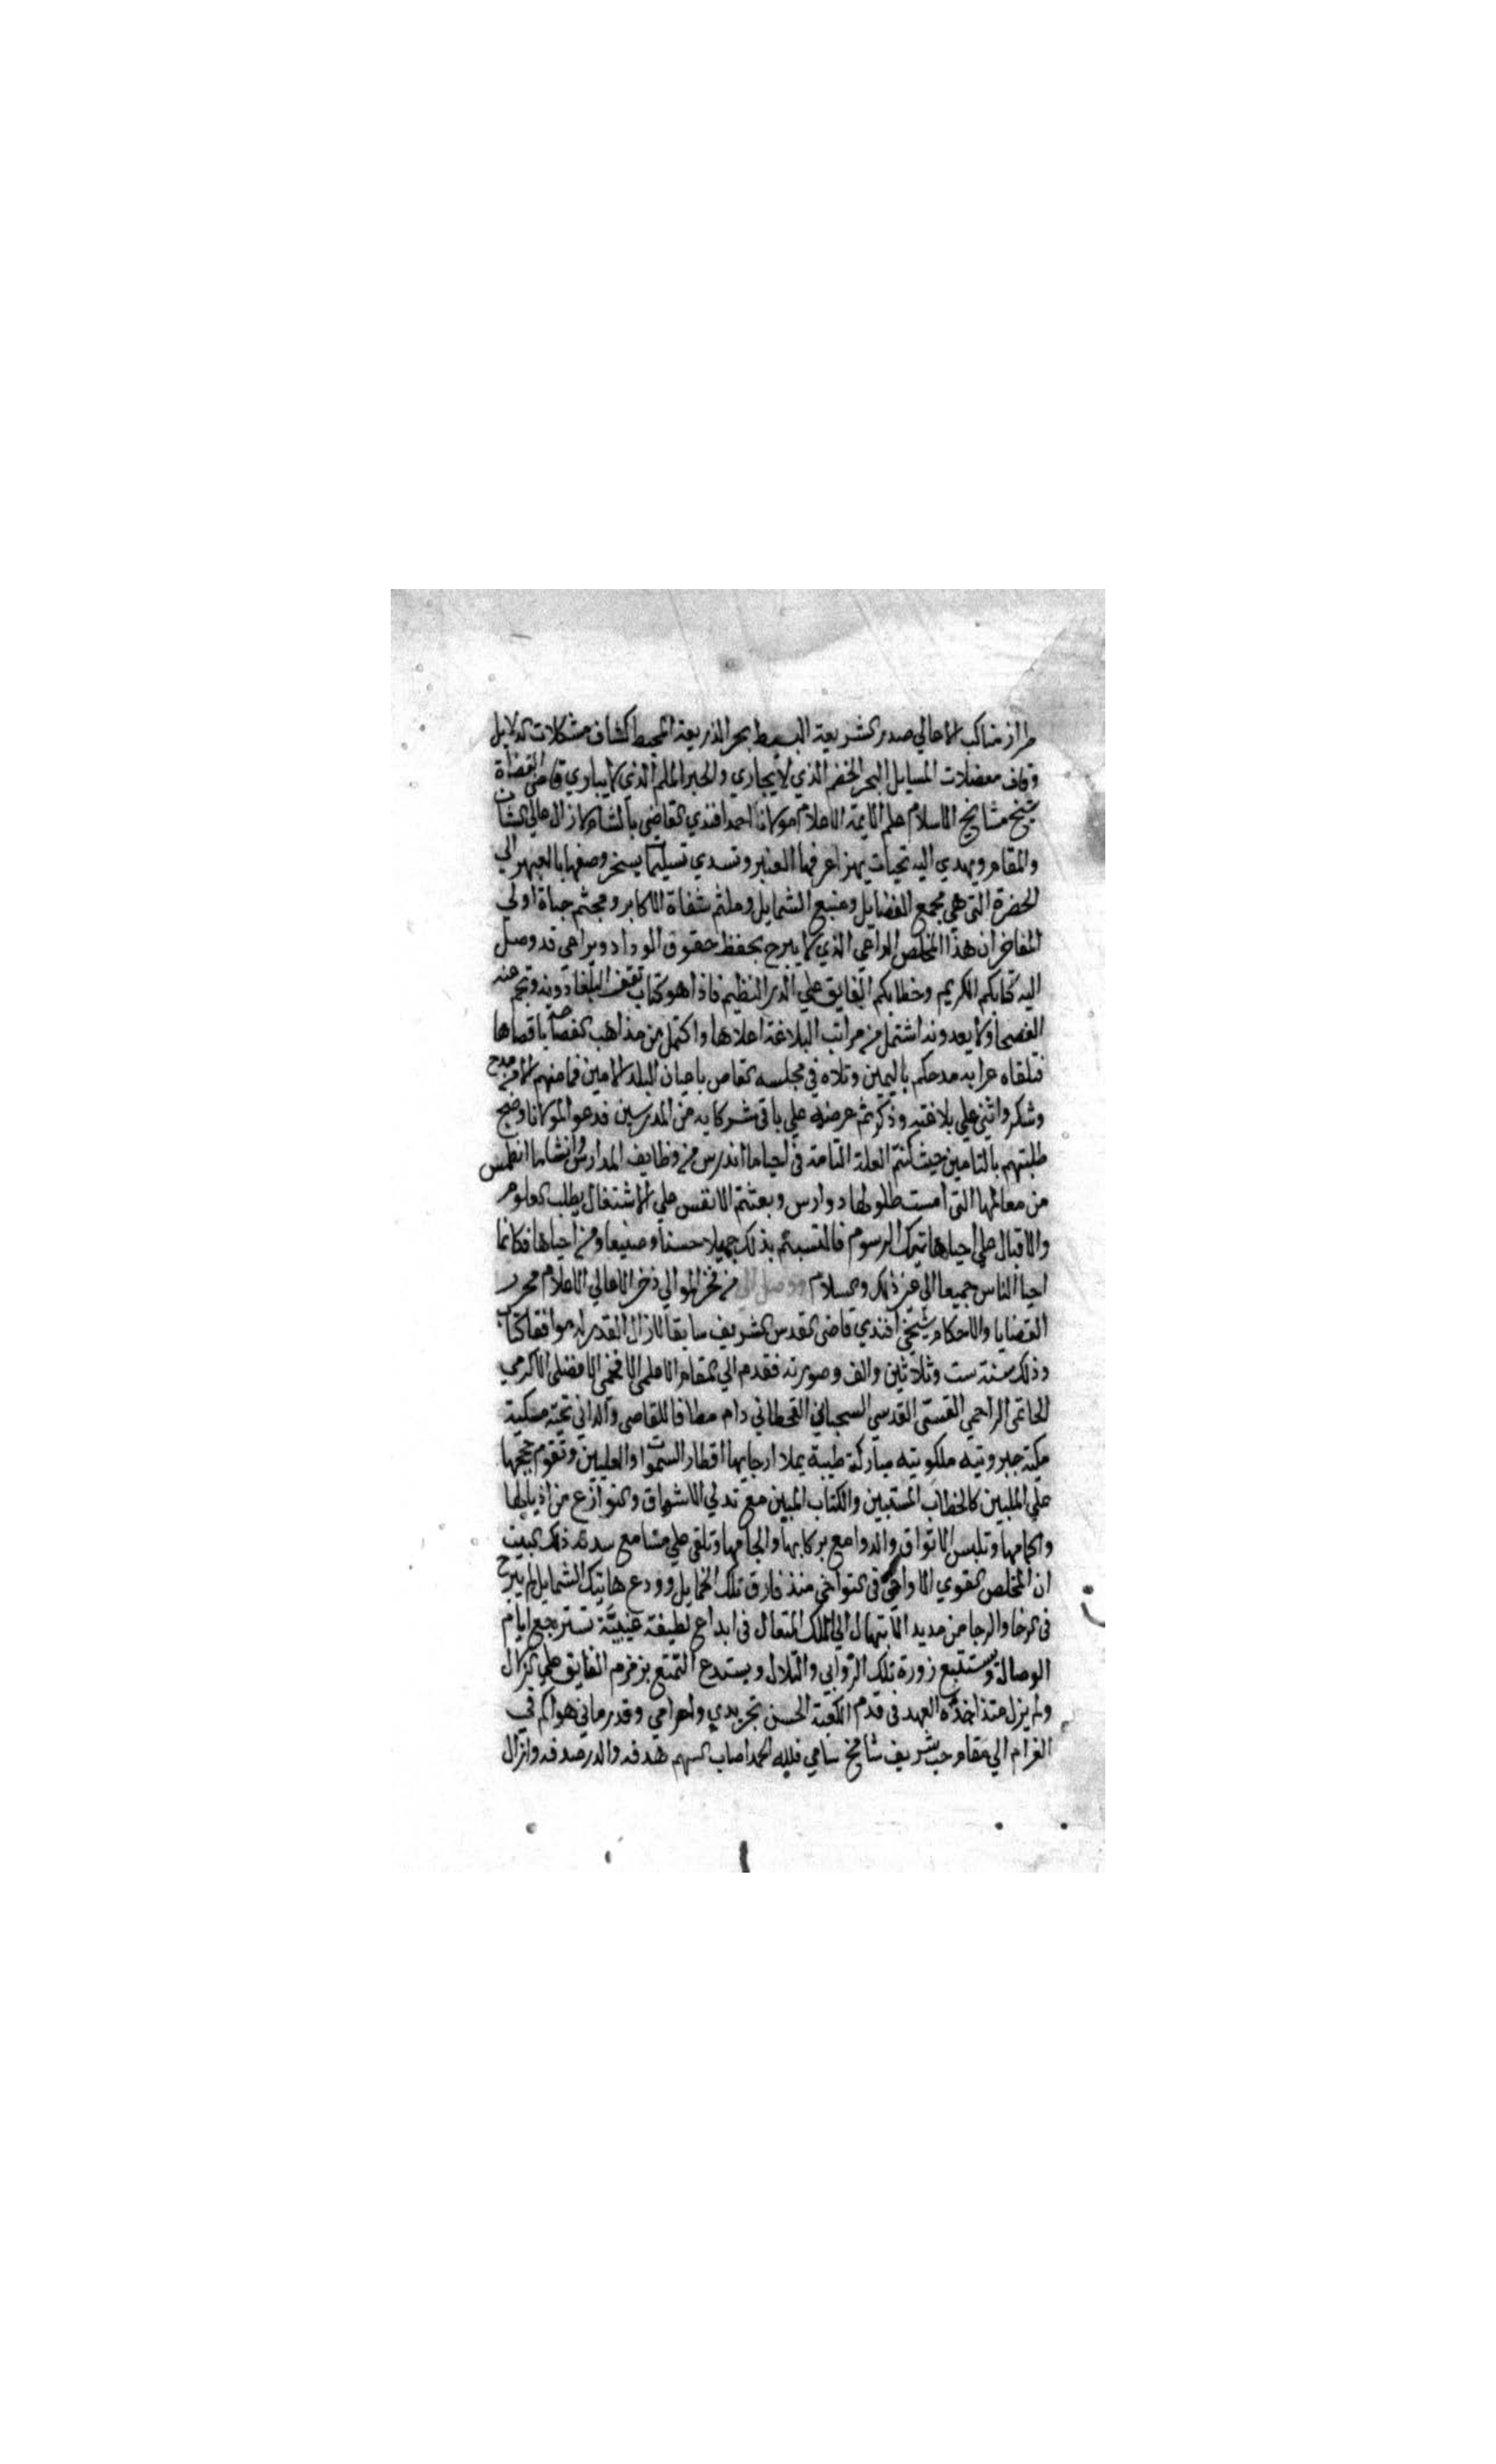 طراز مناكب الاعالي صدر الشريعة البسيط بحر الذريعة المحيط كشاف مشكلات الدلايل
وقاف معضلات المسايل البحر الخضم الذي لا يجاري والحبر الملم الذي لا يباري قاضي القضاة
شيخ مشايخ الاسلام علم الايمة الاعلام مولانا احمد افندي القاضي بالشام لا زال عالي الشان
والمقام ويهدي اليه تحيات يهزا عرفها العنبر وتسدي تسليما يسخر وصفها بالعبهر الي
الحضرة التي هي مجمع الفضايل ومنبع الشمايل وملثم شفاة الاكابر ومجثم جباة اولي
المفاخر ان هذا المخلص الداعي الذي لا يبرح بحفظ حقوق الوداد ويراعي قد وصل
اليه كتابكم الكريم وخطابكم الفايق علي الدر النظيم فاذا هو كتاب تقف البلغا دونه وتجم عنه
الفصحا ولا يعدونه اشتمل من مراتب البلاغة اعلاها واكتمل من مذاهب الفصاحة باقصاها
فتلقاه عرابه مدحكم باليمين وتلاه في مجلسه الغاص باعيان البلد الامين فما منهم الا من مدح
وشكر واثني علي بلاغته وذكر ثم عرضه علي باقي شركايه من المدرسين فدعوا لمولانا وضج
طلبتهم بالتامين حيث كنتم العلة التامة في احيا ما اندرس من وظايف المدارس وانشا ما انطمس
من معالمها التي امست طلولها دوارس وبعثتم الانفس علي الاشتغال بطلب العلوم
والاقبال علي احيا هاتيك الرسوم فاكتسبتم بذلك جميلا حسنا وصنيعا ومن احياها فكانما
احيا الناس جميعا الي غير ذلك والسلام ووصل الي من فخر الموالي ذخر الاعالي الاعلام محرر
القضايا والاحكام شيخي افندي قاضي القدس الشريف سابقا لازال القدر له موافقا كتاب
وذلك سنة ست وثلاثين والف وصورته فقدم الي المقام الاعلمي الافخمي الافضلي الاكرمي
الحاتمي الراحمي القسي القدسي السحباني القحطاني دام مطافا للقاصي والداني تحية مسكية
مكية جبروتيه ملكوتيه مباركة طيبة يملا ارجايها اقطار السموات والعليين وتقوم حججها
علي الملبين كالخطاب المستبين والكتاب المبين مع تدلي الاشواق والنوازع من اذيالها
واكمامها وتلبس الاتواق والدوامع بركابها والجامها وتلقي علي مشامع سدنة ذلك البيت
ان المخلص القوي الاواخي في التواخي منذ فارق تلك الخمايل وودع هاتيك الشمايل لم يبرح
في الرخا والرجا من مديد الابتهال الي الملك المتعال في ابداع لطيفة غيبية تسترجع ايام
الوصال وتستتبع زورة تلك الروابي والتلال ويستدع التمتع بزمزم الفايق علي الزلال
ولم يزل منذ اخذه العهد في قدم الكعبة الحسن تجريدي واحرامي وقد رماني هواكم في
الغرام الي مقام حب شريف شامخ سامي فلله الحمد اصاب السهم هدفه والدر صدفه وانزال